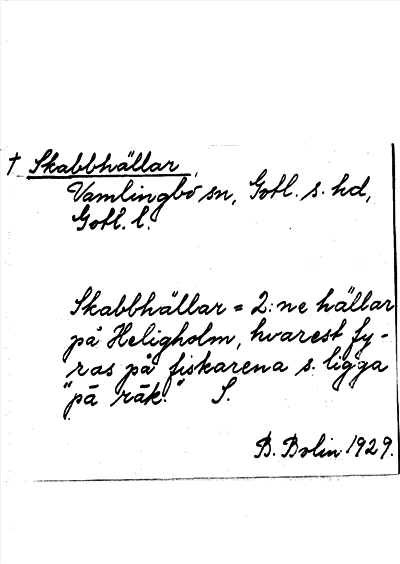 † Skabbhällar,
Vamlingbo sn, Gotl. s. hd,
Gotl. l.
Skabbhällar = 2:ne hällar
på Heligholm, hvarest fy-
ras på fiskarena s. ligga
"på räk." S.
B. Bolin 1929.